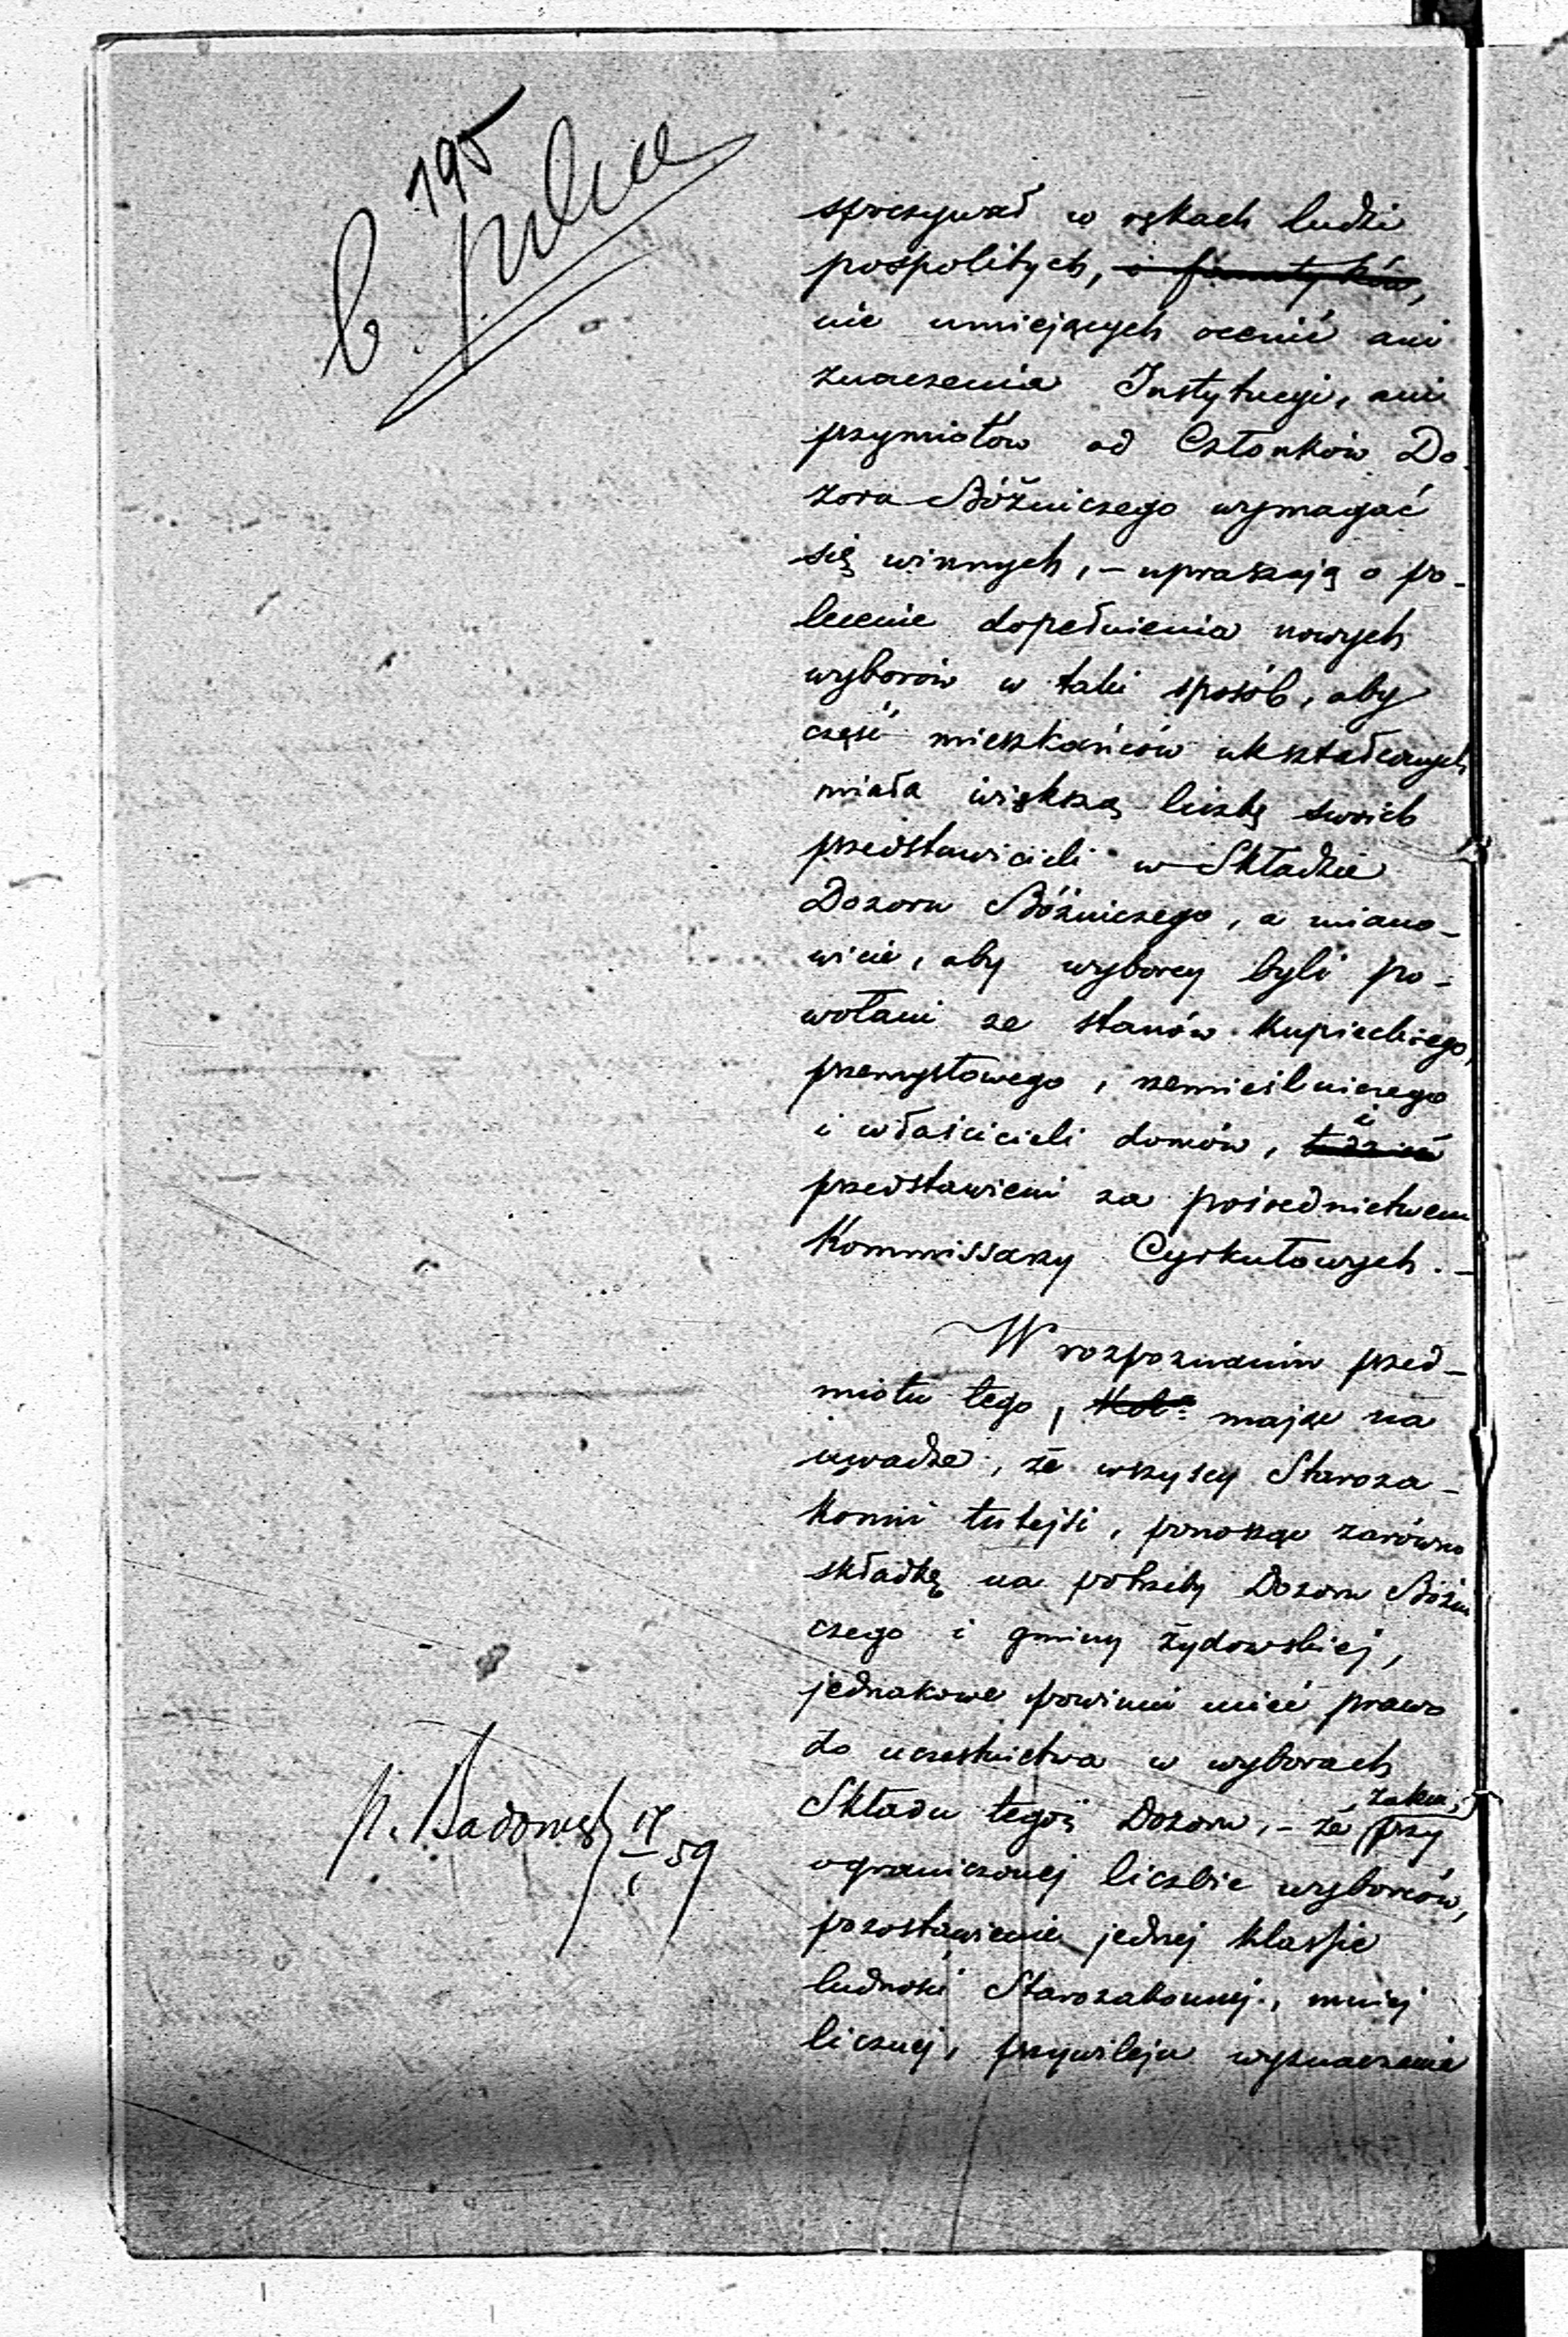 195
b. pilne
spoczywać w rękach ludzi
pospolitych, i fanatyków,
nie umiejących ocenić ani
znaczenia Instytucyi, ani
przymiotów od Członków Do-
zoru Bóżniczego wymagać
się winnych, – upraszają o po-
lecenie dopełnienia nowych
wyborów w taki sposób, aby
część mieszkańców ukształconych
miała większą liczbę swoich
przedstawicieli w Składzie
Dozoru Bóźniczego, a miano-
wicie, aby wyborcy byli po-
wołani ze stanów kupieckiego,
przemysłowego, rzemieślniczego
i właścicieli domów, i
przedstawieni za pośrednictwem
Kommissarzy Cyrkułowych. –
W rozpoznaniu przed-
miotu tego, mając na
uwadze, że wszyscy Staroza-
konni tutejsi, ponosząc zarówno
składkę na potrzeby Dozoru Bóżni
czego i gminy żydowskiej,
jednakowe powinni mieć prawo
do uczestnictwa w wyborach
Składu tegoż Dozoru, – że przy
ograniczonej liczbie wyborców,
pozostawienie jednej klassie
ludności Starozakonnej, mniej
licznej, przywileju wyznaczenia
p. Badowski 17/1 59